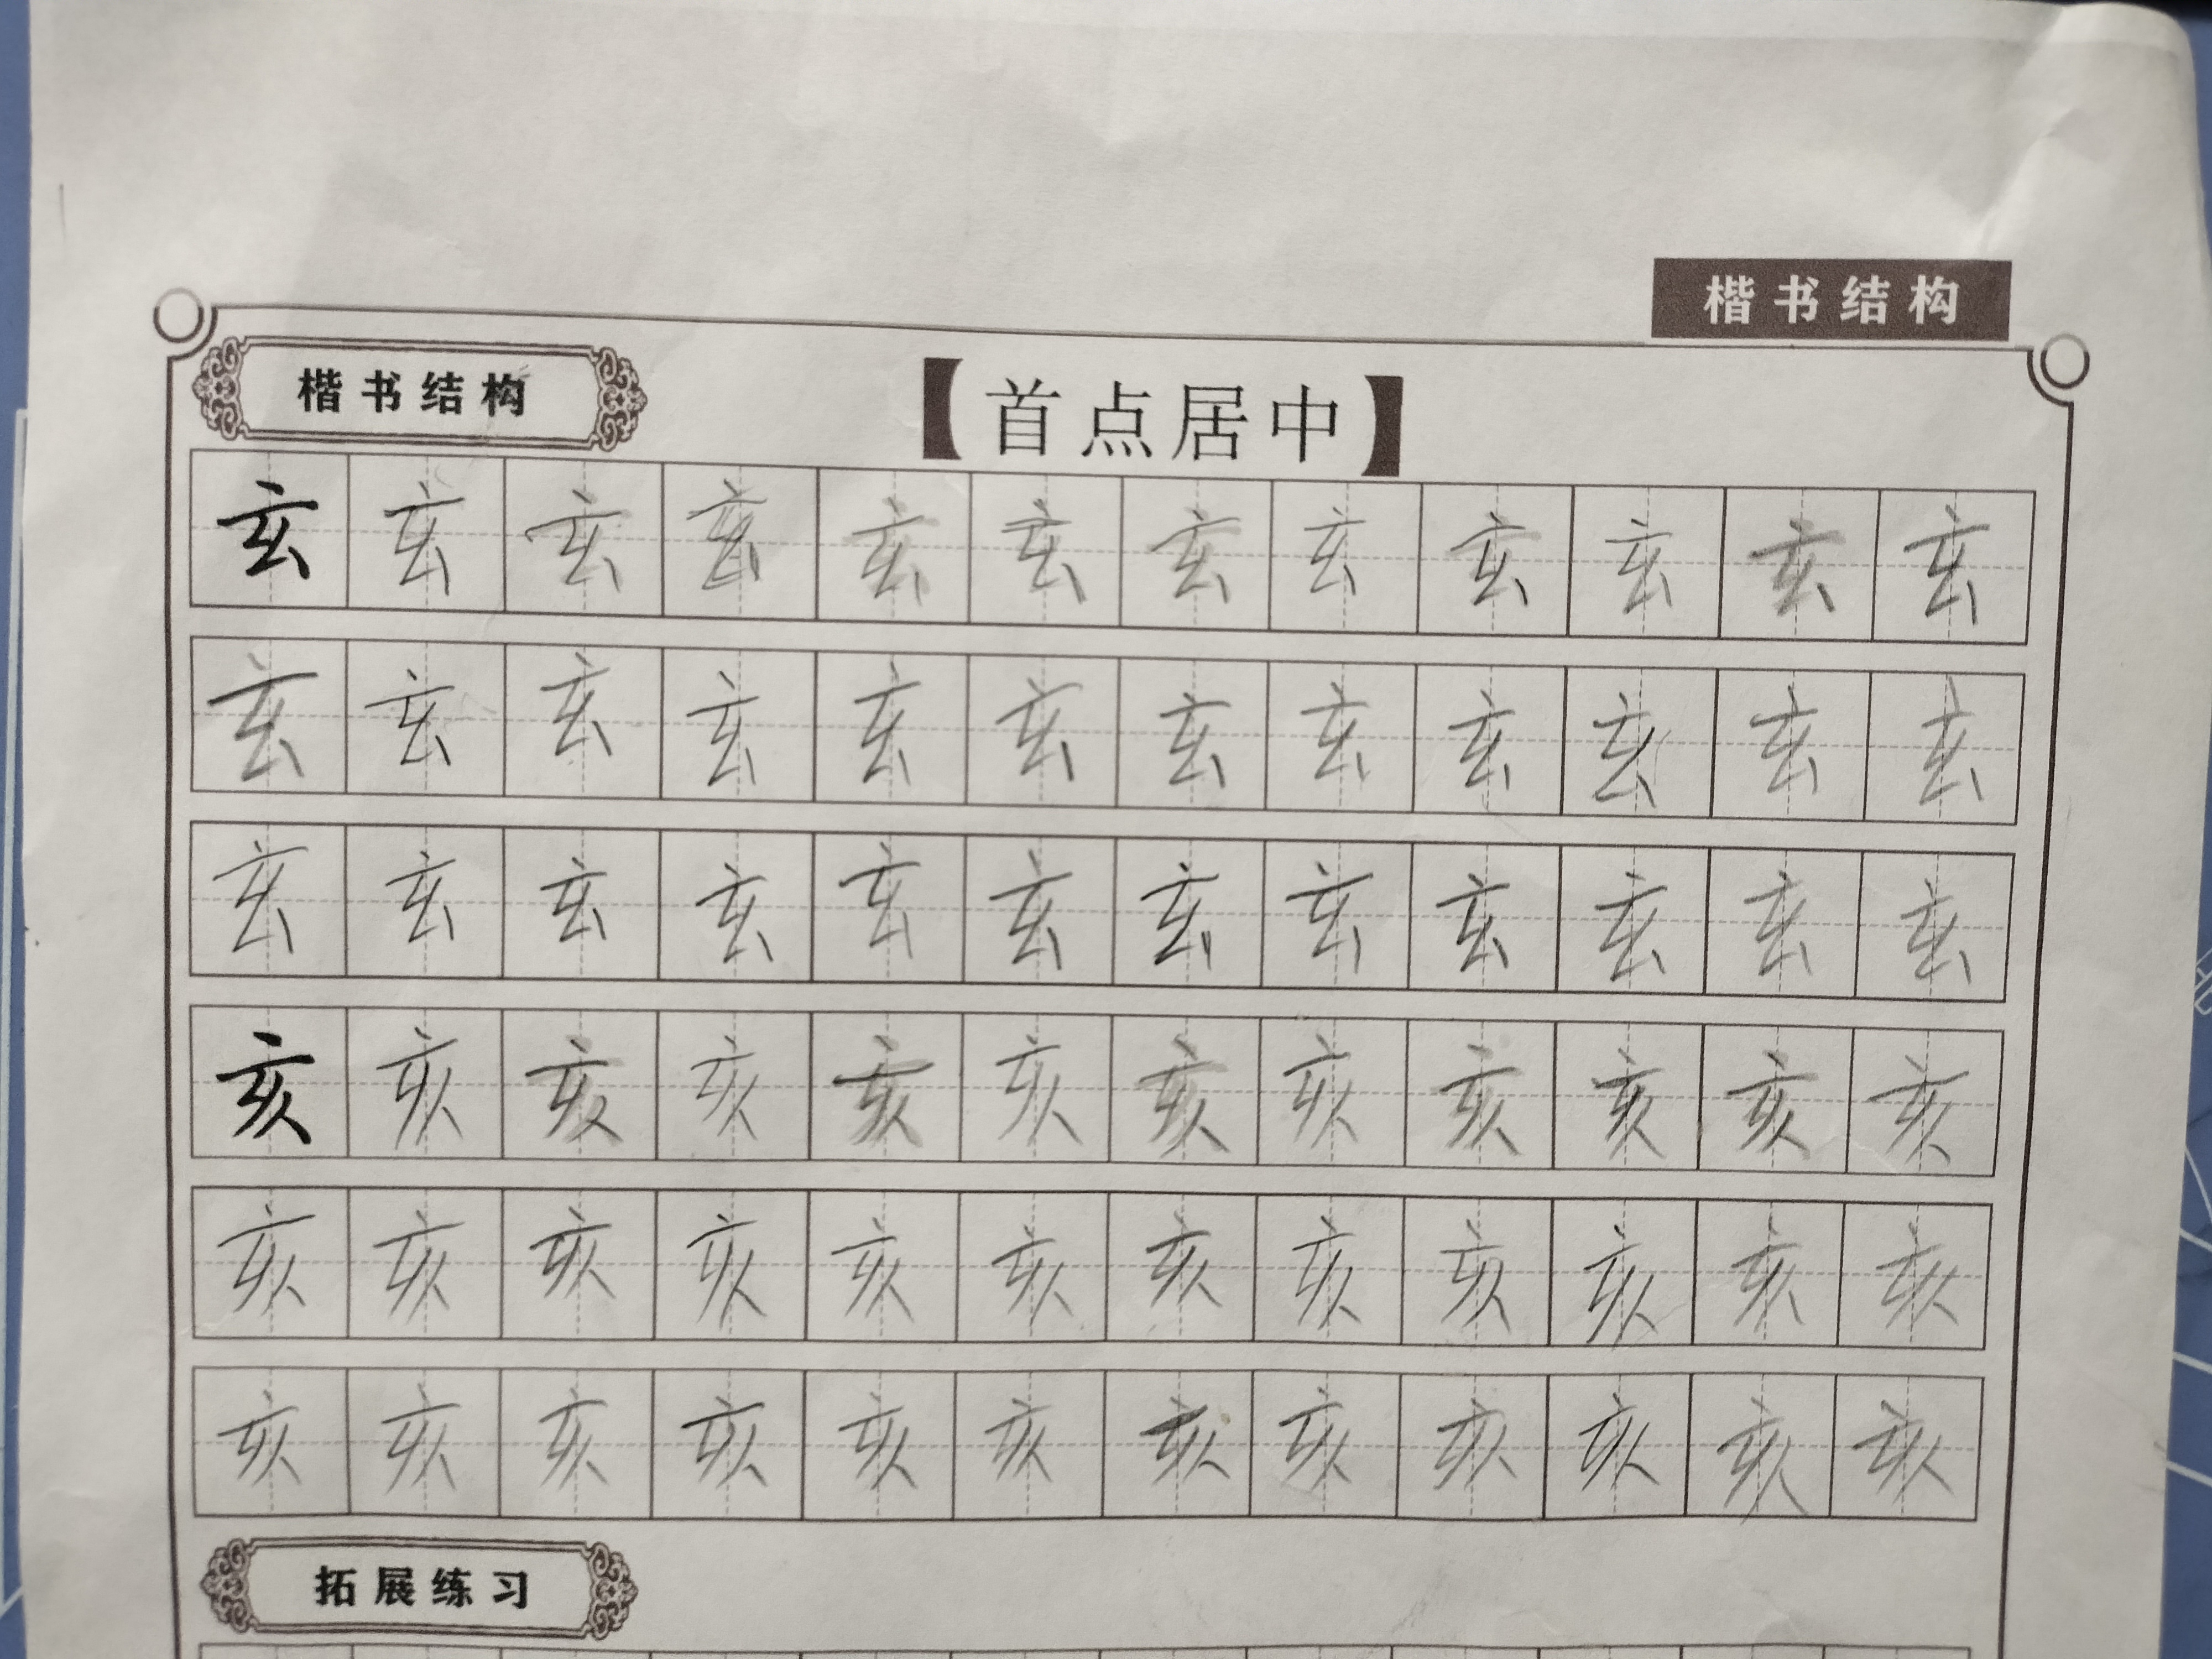 楷书结构
楷书结构
【首点居中】
玄玄玄玄玄玄玄玄玄玄玄玄
玄玄玄玄玄玄玄玄玄玄玄玄
玄玄玄玄玄玄玄玄玄玄玄玄
亥亥亥亥亥亥亥亥亥亥亥亥
亥亥亥亥亥亥亥亥亥亥亥亥
亥亥亥亥亥亥亥亥亥亥亥亥
拓展练习